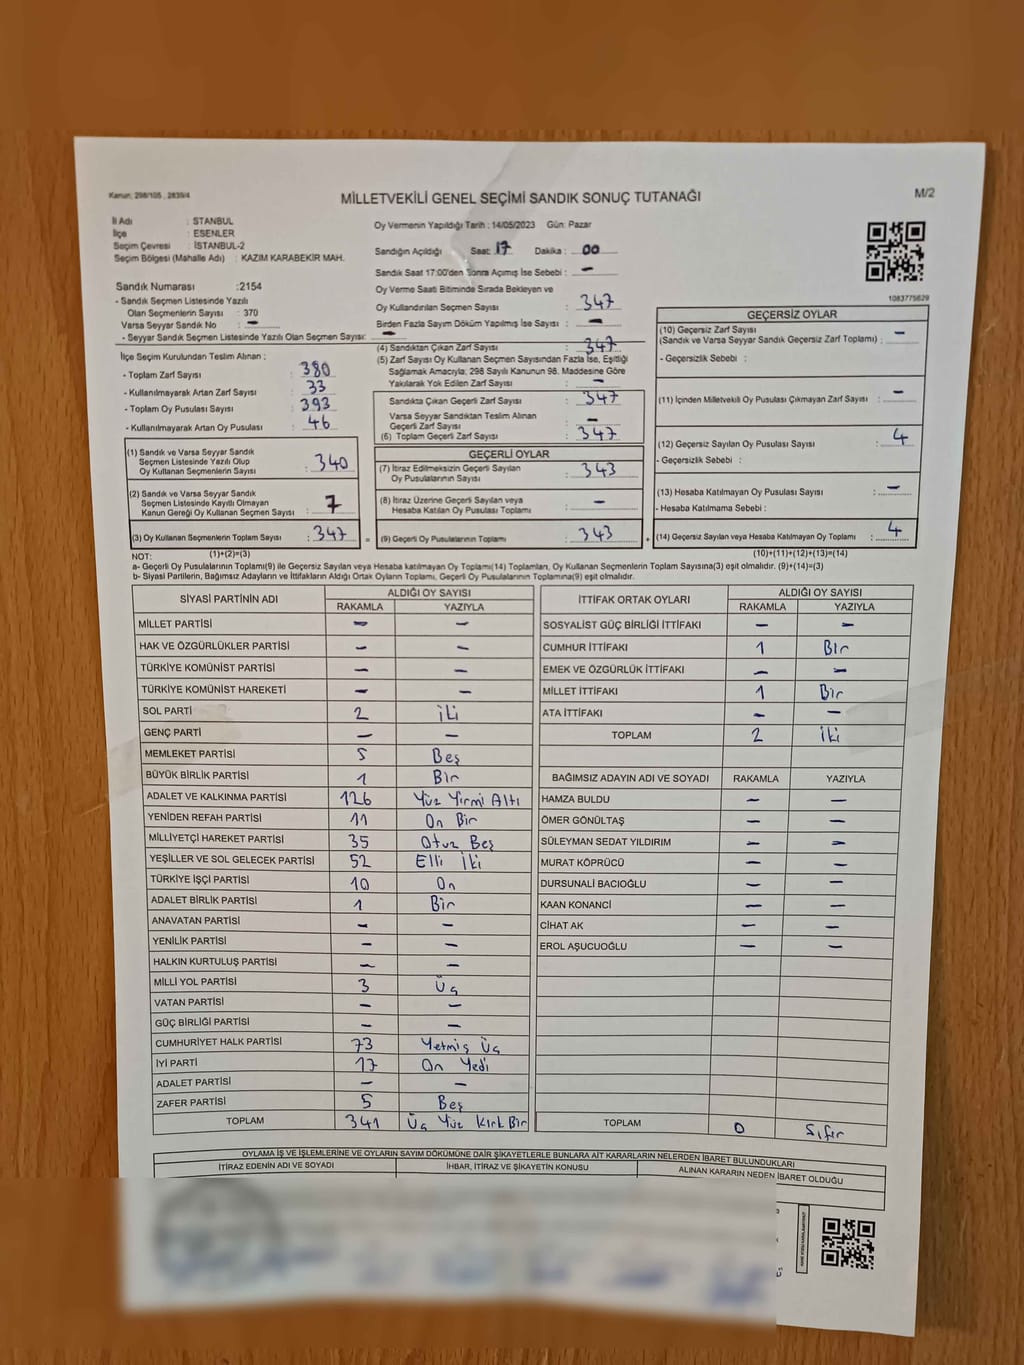 Kanun: 298/105 , 2839/4
MİLLETVEKİLİ GENEL SEÇİMİ SANDIK SONUÇ TUTANAĞI
M/2
İl Adı : STANBUL
İlçe : ESENLER
Seçim Çevresi : İSTANBUL-2
Seçim Bölgesi (Mahalle Adı) : KAZIM KARABEKİR MAH.
Sandık Numarası :2154
- Sandık Seçmen Listesinde Yazılı
Olan Seçmenlerin Sayısı : 370
Varsa Seyyar Sandık No : -
- Seyyar Sandık Seçmen Listesinde Yazılı Olan Seçmen Sayısı: -
İlçe Seçim Kurulundan Teslim Alınan :
- Toplam Zarf Sayısı : 380
- Kullanılmayarak Artan Zarf Sayısı : 33
- Toplam Oy Pusulası Sayısı : 393
- Kullanılmayarak Artan Oy Pusulası : 46
(1) Sandık ve Varsa Seyyar Sandık
Seçmen Listesinde Yazılı Olup
Oy Kullanan Seçmenlerin Sayısı : 340
(2) Sandık ve Varsa Seyyar Sandık
Seçmen Listesinde Kayıtlı Olmayan
Kanun Gereği Oy Kullanan Seçmen Sayısı : 7
(3) Oy Kullanan Seçmenlerin Toplam Sayısı : 347
(1)+(2)=(3)
Oy Vermenin Yapıldığı Tarih : 14/05/2023 Gün: Pazar
Sandığın Açıldığı Saat: 17 Dakika : 00
Sandık Saat 17:00'den Sonra Açılmış İse Sebebi : -
Oy Verme Saati Bitiminde Sırada Bekleyen ve
Oy Kullandırılan Seçmen Sayısı : 347
Birden Fazla Sayım Döküm Yapılmış İse Sayısı : -
(4) Sandıktan Çıkan Zarf Sayısı : 347
(5) Zarf Sayısı Oy Kullanan Seçmen Sayısından Fazla İse, Eşitliği
Sağlamak Amacıyla, 298 Sayılı Kanunun 98. Maddesine Göre
Yakılarak Yok Edilen Zarf Sayısı : -
Sandıkta Çıkan Geçerli Zarf Sayısı : 347
Varsa Seyyar Sandıktan Teslim Alınan
Geçerli Zarf Sayısı : -
(6) Toplam Geçerli Zarf Sayısı : 347
GEÇERLİ OYLAR
(7) İtiraz Edilmeksizin Geçerli Sayılan
Oy Pusulalarının Sayısı : 343
(8) İtiraz Üzerine Geçerli Sayılan veya
Hesaba Katılan Oy Pusulası Toplamı : -
= (9) Geçerli Oy Pusulalarının Toplamı : 343
1083775629
GEÇERSİZ OYLAR
(10) Geçersiz Zarf Sayısı
(Sandık ve Varsa Seyyar Sandık Geçersiz Zarf Toplamı) : -
- Geçersizlik Sebebi :
(11) İçinden Milletvekili Oy Pusulası Çıkmayan Zarf Sayısı : -
(12) Geçersiz Sayılan Oy Pusulası Sayısı : 4
- Geçersizlik Sebebi :
(13) Hesaba Katılmayan Oy Pusulası Sayısı : -
- Hesaba Katılmama Sebebi :
+ (14) Geçersiz Sayılan veya Hesaba Katılmayan Oy Toplamı : 4
(10)+(11)+(12)+(13)=(14)
NOT:
a- Geçerli Oy Pusulalarının Toplamı(9) ile Geçersiz Sayılan veya Hesaba katılmayan Oy Toplamı(14) Toplamları, Oy Kullanan Seçmenlerin Toplam Sayısına(3) eşit olmalıdır. (9)+(14)=(3)
b- Siyasi Partilerin, Bağımsız Adayların ve İttifakların Aldığı Ortak Oyların Toplamı, Geçerli Oy Pusulalarının Toplamına(9) eşit olmalıdır.
SİYASİ PARTİNİN ADI ALDIĞI OY SAYISI
RAKAMLA YAZIYLA
MİLLET PARTİSİ - -
HAK VE ÖZGÜRLÜKLER PARTİSİ - -
TÜRKİYE KOMÜNİST PARTİSİ - -
TÜRKİYE KOMÜNİST HAREKETİ - -
SOL PARTİ 2 İki
GENÇ PARTİ - -
MEMLEKET PARTİSİ 5 Beş
BÜYÜK BİRLİK PARTİSİ 1 Bir
ADALET VE KALKINMA PARTİSİ 126 Yüz Yirmi Altı
YENİDEN REFAH PARTİSİ 11 On Bir
MİLLİYETÇİ HAREKET PARTİSİ 35 Otuz Beş
YEŞİLLER VE SOL GELECEK PARTİSİ 52 Elli İki
TÜRKİYE İŞÇİ PARTİSİ 10 On
ADALET BİRLİK PARTİSİ 1 Bir
ANAVATAN PARTİSİ - -
YENİLİK PARTİSİ - -
HALKIN KURTULUŞ PARTİSİ - -
MİLLİ YOL PARTİSİ 3 Üç
VATAN PARTİSİ - -
GÜÇ BİRLİĞİ PARTİSİ - -
CUMHURİYET HALK PARTİSİ 73 Yetmiş Üç
İYİ PARTİ 17 On Yedi
ADALET PARTİSİ - -
ZAFER PARTİSİ 5 Beş
TOPLAM 341 Üç Yüz Kırk Bir
İTTİFAK ORTAK OYLARI ALDIĞI OY SAYISI
RAKAMLA YAZIYLA
SOSYALİST GÜÇ BİRLİĞİ İTTİFAKI - -
CUMHUR İTTİFAKI 1 Bir
EMEK VE ÖZGÜRLÜK İTTİFAKI - -
MİLLET İTTİFAKI 1 Bir
ATA İTTİFAKI - -
TOPLAM 2 İki
BAĞIMSIZ ADAYIN ADI VE SOYADI RAKAMLA YAZIYLA
HAMZA BULDU - -
ÖMER GÖNÜLTAŞ - -
SÜLEYMAN SEDAT YILDIRIM - -
MURAT KÖPRÜCÜ - -
DURSUNALİ BACIOĞLU - -
KAAN KONANCİ - -
CİHAT AK - -
EROL AŞUCUOĞLU - -
TOPLAM 0 Sıfır
OYLAMA İŞ VE İŞLEMLERİNE VE OYLARIN SAYIM DÖKÜMÜNE DAİR ŞİKAYETLERLE BUNLARA AİT KARARLARIN NELERDEN İBARET BULUNDUKLARI
İTİRAZ EDENİN ADI VE SOYADI İHBAR, İTİRAZ VE ŞİKAYETİN KONUSU ALINAN KARARIN NEDEN İBARET OLDUĞU